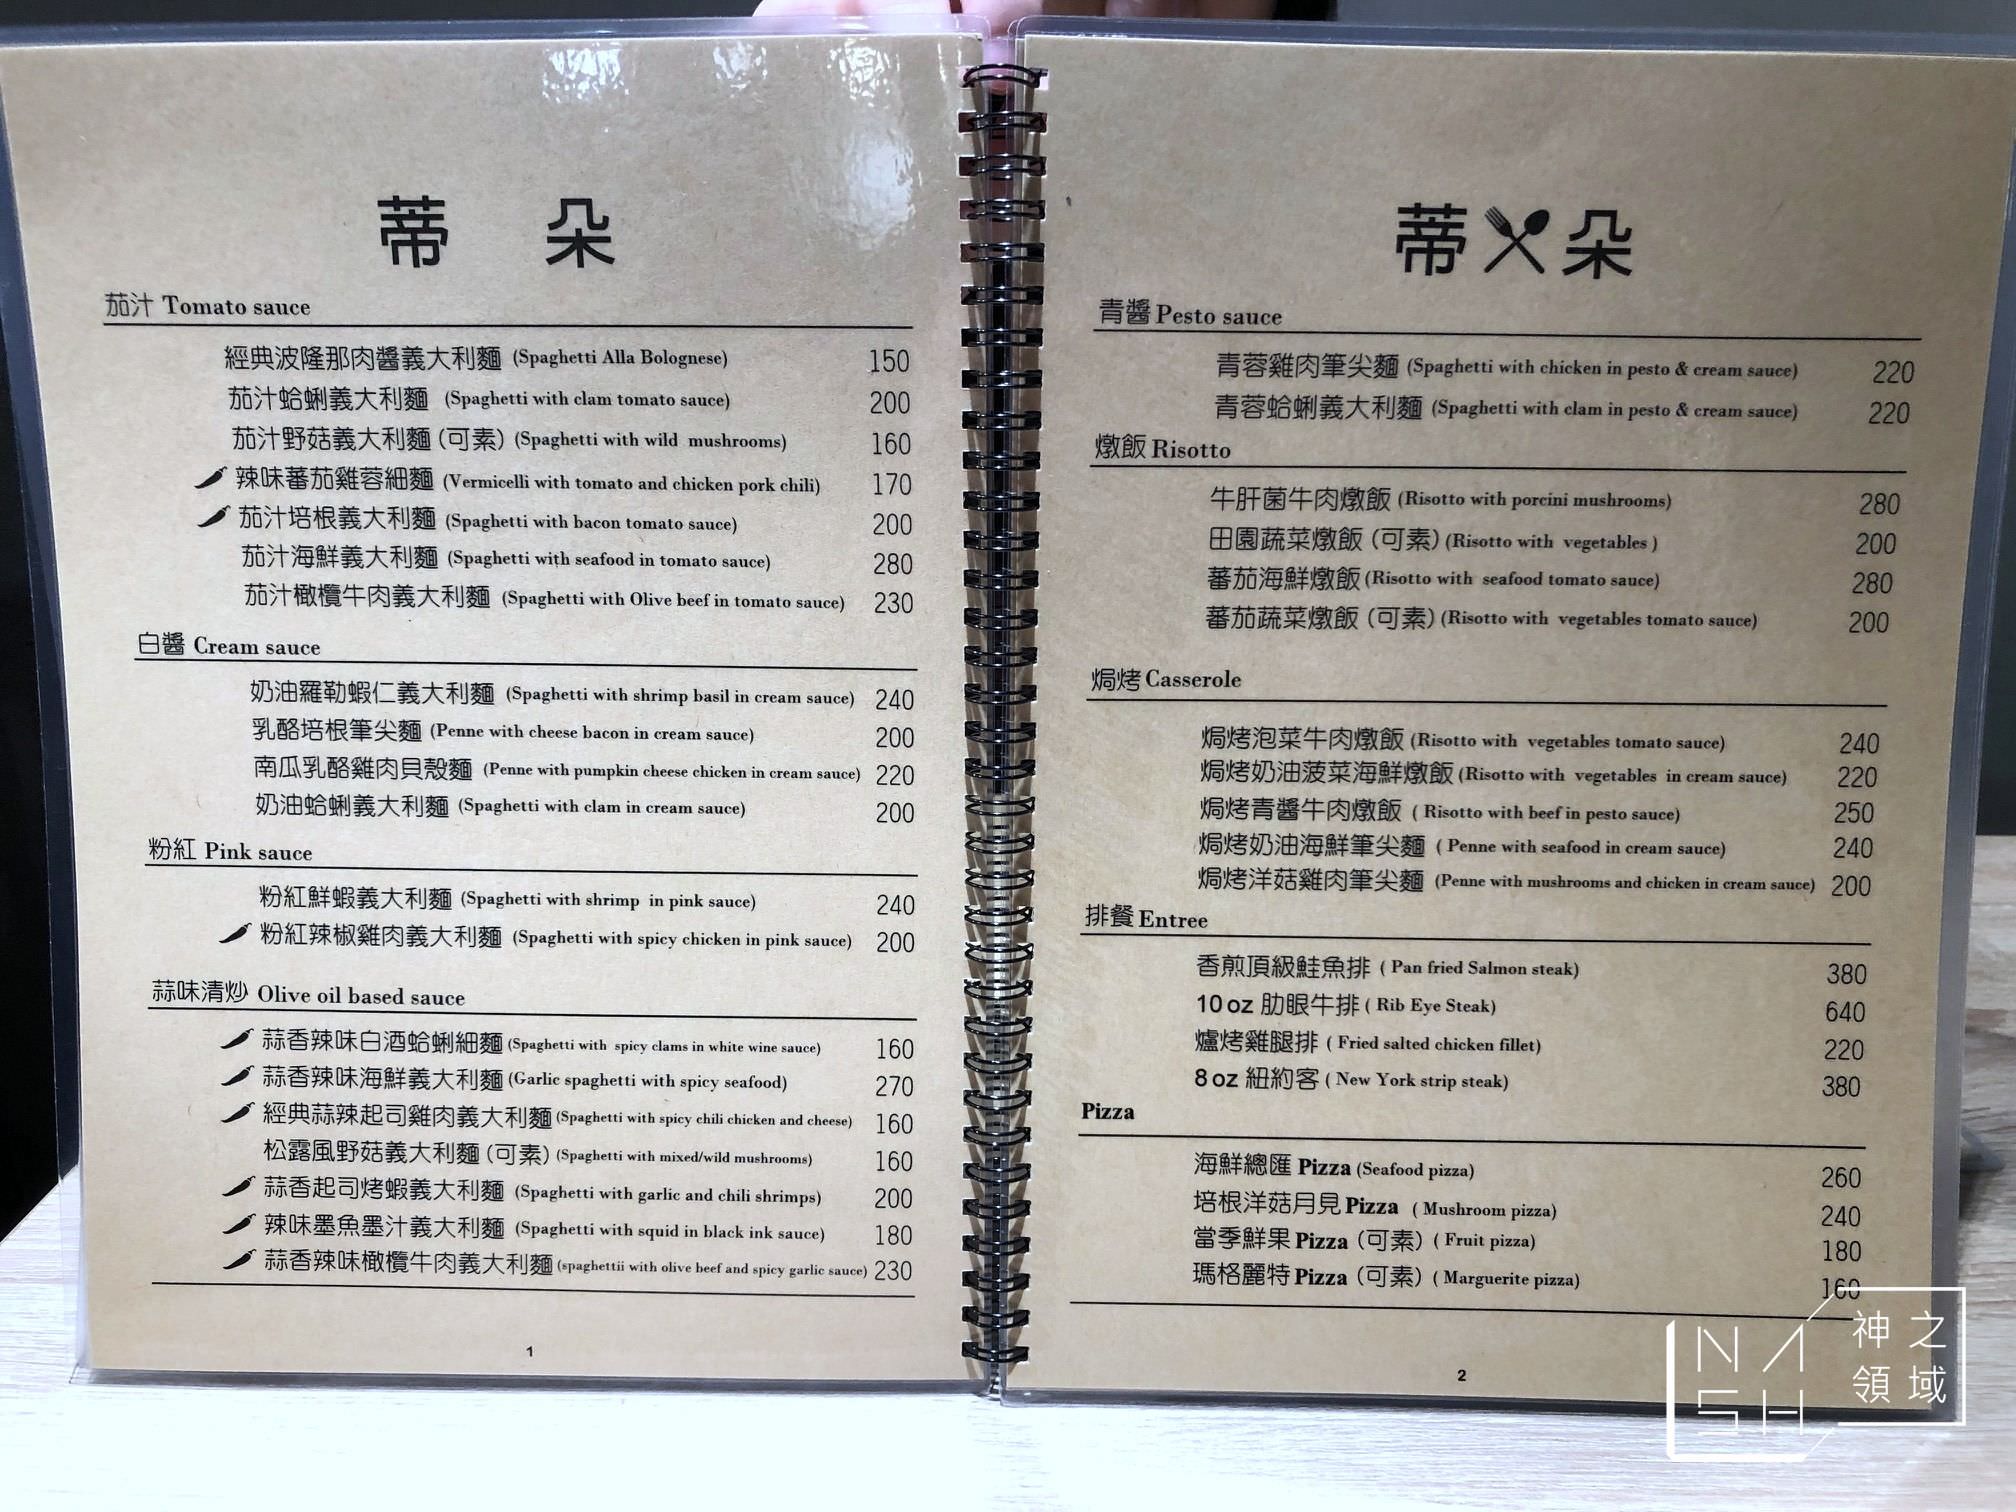 蒂 朵
茄汁 Tomato sauce
經典波隆那肉醬義大利麵 (Spaghetti Alla Bolognese) 150
茄汁蛤蜊義大利麵 (Spaghetti with clam tomato sauce) 200
茄汁野菇義大利麵(可素) (Spaghetti with wild mushrooms) 160
辣味蕃茄雞蓉細麵 (Vermicelli with tomato and chicken pork chili) 170
茄汁培根義大利麵 (Spaghetti with bacon tomato sauce) 200
茄汁海鮮義大利麵 (Spaghetti with seafood in tomato sauce) 280
茄汁橄欖牛肉義大利麵 (Spaghetti with Olive beef in tomato sauce) 230
白醬 Cream sauce
奶油羅勒蝦仁義大利麵 (Spaghetti with shrimp basil in cream sauce) 240
乳酪培根筆尖麵 (Penne with cheese bacon in cream sauce) 200
南瓜乳酪雞肉貝殼麵 (Penne with pumpkin cheese chicken in cream sauce) 220
奶油蛤蜊義大利麵 (Spaghetti with clam in cream sauce) 200
粉紅 Pink sauce
粉紅鮮蝦義大利麵 (Spaghetti with shrimp in pink sauce) 240
粉紅辣椒雞肉義大利麵 (Spaghetti with spicy chicken in pink sauce) 200
蒜味清炒 Olive oil based sauce
蒜香辣味白酒蛤蜊細麵 (Spaghetti with spicy clams in white wine sauce) 160
蒜香辣味海鮮義大利麵 (Garlic spaghetti with spicy seafood) 270
經典蒜辣起司雞肉義大利麵 (Spaghetti with spicy chili chicken and cheese) 160
松露風野菇義大利麵(可素) (Spaghetti with mixed/wild mushrooms) 160
蒜香起司烤蝦義大利麵 (Spaghetti with garlic and chili shrimps) 200
辣味墨魚墨汁義大利麵 (Spaghetti with squid in black ink sauce) 180
蒜香辣味橄欖牛肉義大利麵 (spaghettii with olive beef and spicy garlic sauce) 230
1
蒂 朵
青醬 Pesto sauce
青蓉雞肉筆尖麵 (Spaghetti with chicken in pesto & cream sauce) 220
青蓉蛤蜊義大利麵 (Spaghetti with clam in pesto & cream sauce) 220
燉飯 Risotto
牛肝菌牛肉燉飯 (Risotto with porcini mushrooms) 280
田園蔬菜燉飯(可素) (Risotto with vegetables ) 200
蕃茄海鮮燉飯 (Risotto with seafood tomato sauce) 280
蕃茄蔬菜燉飯(可素) (Risotto with vegetables tomato sauce) 200
焗烤 Casserole
焗烤泡菜牛肉燉飯 (Risotto with vegetables tomato sauce) 240
焗烤奶油菠菜海鮮燉飯 (Risotto with vegetables in cream sauce) 220
焗烤青醬牛肉燉飯 ( Risotto with beef in pesto sauce) 250
焗烤奶油海鮮筆尖麵 ( Penne with seafood in cream sauce) 240
焗烤洋菇雞肉筆尖麵 (Penne with mushrooms and chicken in cream sauce) 200
排餐 Entree
香煎頂級鮭魚排 ( Pan fried Salmon steak) 380
10 oz 肋眼牛排 ( Rib Eye Steak) 640
爐烤雞腿排 ( Fried salted chicken fillet) 220
8 oz 紐約客 ( New York strip steak) 380
Pizza
海鮮總匯 Pizza (Seafood pizza) 260
培根洋菇月見 Pizza ( Mushroom pizza) 240
當季鮮果 Pizza (可素) ( Fruit pizza) 180
瑪格麗特 Pizza (可素) ( Marguerite pizza) 160
2
NASH 神之領域